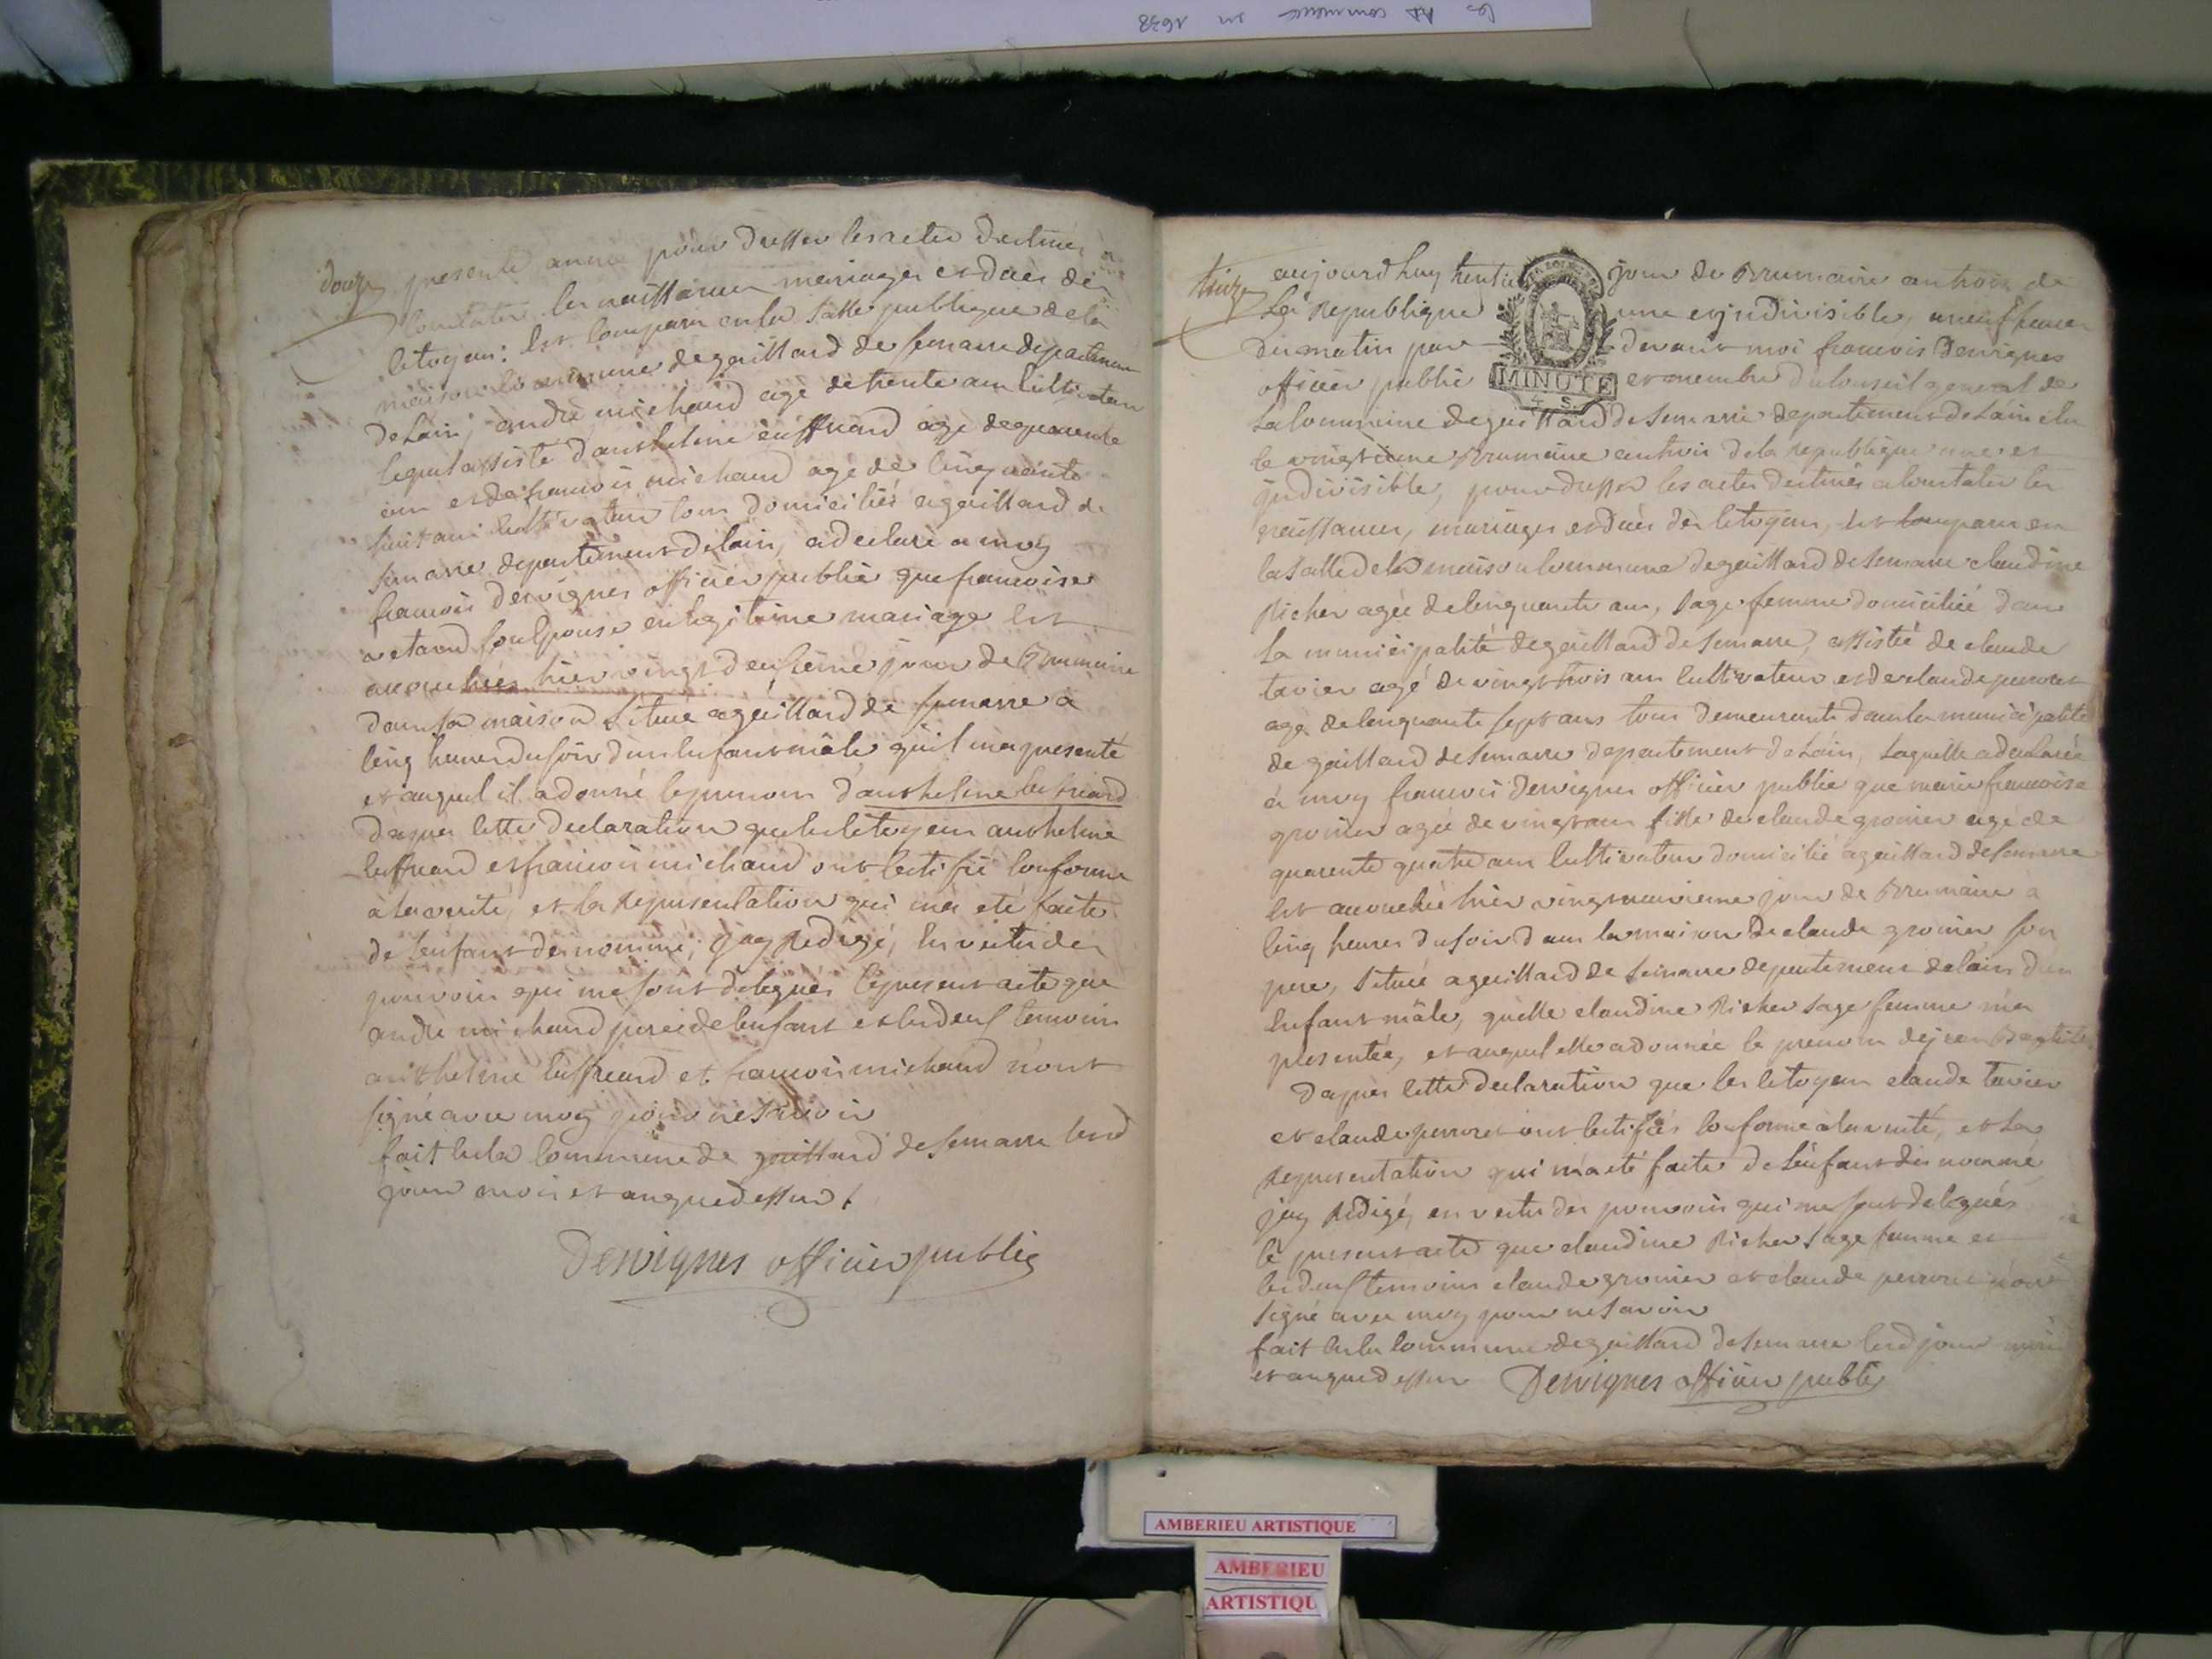 les commence en 1638
douze
presente année pour dresser les actes destinés a
Constater les naissances mariages et deces des
Citoyens: Est Comparu en la Salle publique de la
maison Commune de gaillard de Senarre departement
De Lain, andré michaud agé de trente ans Cultivateur
lequel assisté d'anthelme Cuffreard agé de quarente
ans et de francois michaud agé de Cinquante
huit ans Cultivateur tous domiciliés a gaillard de
Senarre departement de lain, a declaré a moy
francois Desvignes officier public que francoise
son Epouse en legitime mariage Est
accouchée hier vingt deuxieme jour de Brumaire
dans sa maison Située a gaillard de Senarre a
Cinq heures du soir d'un Enfant mâle qu'il m'a presenté
et auquel il a donné le prenom d'anthelme
Dapres Cette declaration que les Citoyens anthelme
Cuffreard et francois michaud ont Certifié Conforme
a la verité, et la Representation qui m'a été faite
de l'enfant denommé; j'ay Redigé, En vertu des
pouvoirs qui me sont delegués le present acte que
andré michaud pere de lenfant et les deux temoins
anthelme Cuffreard et francois michaud n'ont
signé avec moy pour ne Savoir
fait En la Commune de gaillard de Senarre lesd
jour mois et an que dessus.
Desvignes officier public
treize
aujourd'huy trentieme jour de Brumaire an trois de
La Republique une et indivisible, a neuf heures
Du matin par devant moi francois Desvignes
officier public et membre du Conseil general de
MINUTE
4. S.
La Commune de gaillard de Senarre departement de Lain élu
le vingtieme Brumaire an trois de la republique une et
indivisible, pour dresser les actes destinés a Constater les
naissances, mariages et deces des Citoyens, Est Comparu en
la Salle de la maison Commune de gaillard de Senarre claudine
Richer agée de Cinquante ans, Sage femme domiciliée dans
La municipalité de gaillard de Senarre, assistée de claude
tavier agé de vingt trois ans Cultivateur et de claude perrout
agé de Cinquante Sept ans tous demeurants dans la municipalité
de gaillard de Senarre departement de Lain, Laquelle a declarée
a moy francois Desvignes officier public que marie francoise
gronier agée de vingt ans fille de claude gronier agé de
quarente quatre ans Cultivateur domicilié a gaillard de Senarre
Est accouchée hier vingt neuvieme jour de Brumaire a
Cinq heures du soir dans la maison de claude gronier son
pere, Située a gaillard de Senarre departement de lain d'un
Enfant mâle, quelle claudine Richer sage femme m'a
presentée, et auquel elle a donnée le prenom de jean Baptiste
Dapres Cette declaration que les Citoyens claude tavier
et claude perrout ont Certifiés Conforme a la verité, et La
Representation qui m'a été faite de l'enfant denommé
j'ay Redigé, en vertu des pouvoirs qui me sont delegués
le present acte que claudine Richer Sage femme et
les deux temoins claude gronier et claude perrout n'ont
signé avec moy pour ne Savoir
fait En la Commune de gaillard de Senarre lesd jour mois
et an que dessus Desvignes officier public
AMBERIEU ARTISTIQUE
AMBERIEU
ARTISTIQU